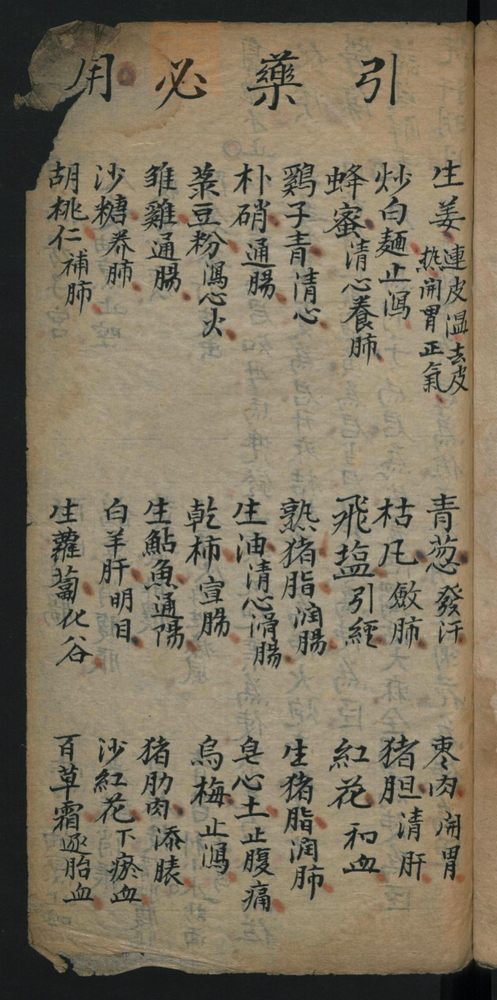 引藥必用
生姜 連皮温去皮熱開胃正氣
青葱 發汗
枣肉 開胃
炒白麵 止瀉
枯凡 斂肺
猪胆 清肝
蜂蜜 清心養肺
飛塩 引經
紅花 和血
鷄子青 清心
熟猪脂 潤腸
生猪脂 潤肺
朴硝 通腸
生油 清心滑腸
皂心土 止腹痛
菉豆粉 瀉心火
乾柿 宣腸
烏梅 止瀉
雏雞 通腸
生鮎魚 通陽
猪肋肉 添膘
沙糖 养肺
白羊肝 明目
沙紅花 下瘀血
胡桃仁 補肺
生蘿蔔 化谷
百草霜 逐胎血